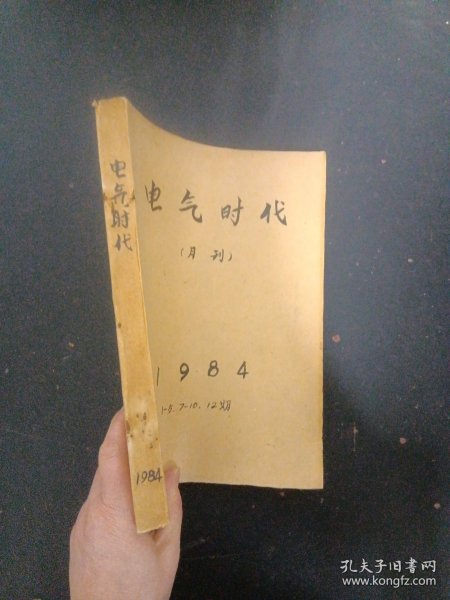 电气时代
1984
电气时代
(月刊)
1984
1-5.7-10.12期
孔夫子旧书网
www.kongfz.com